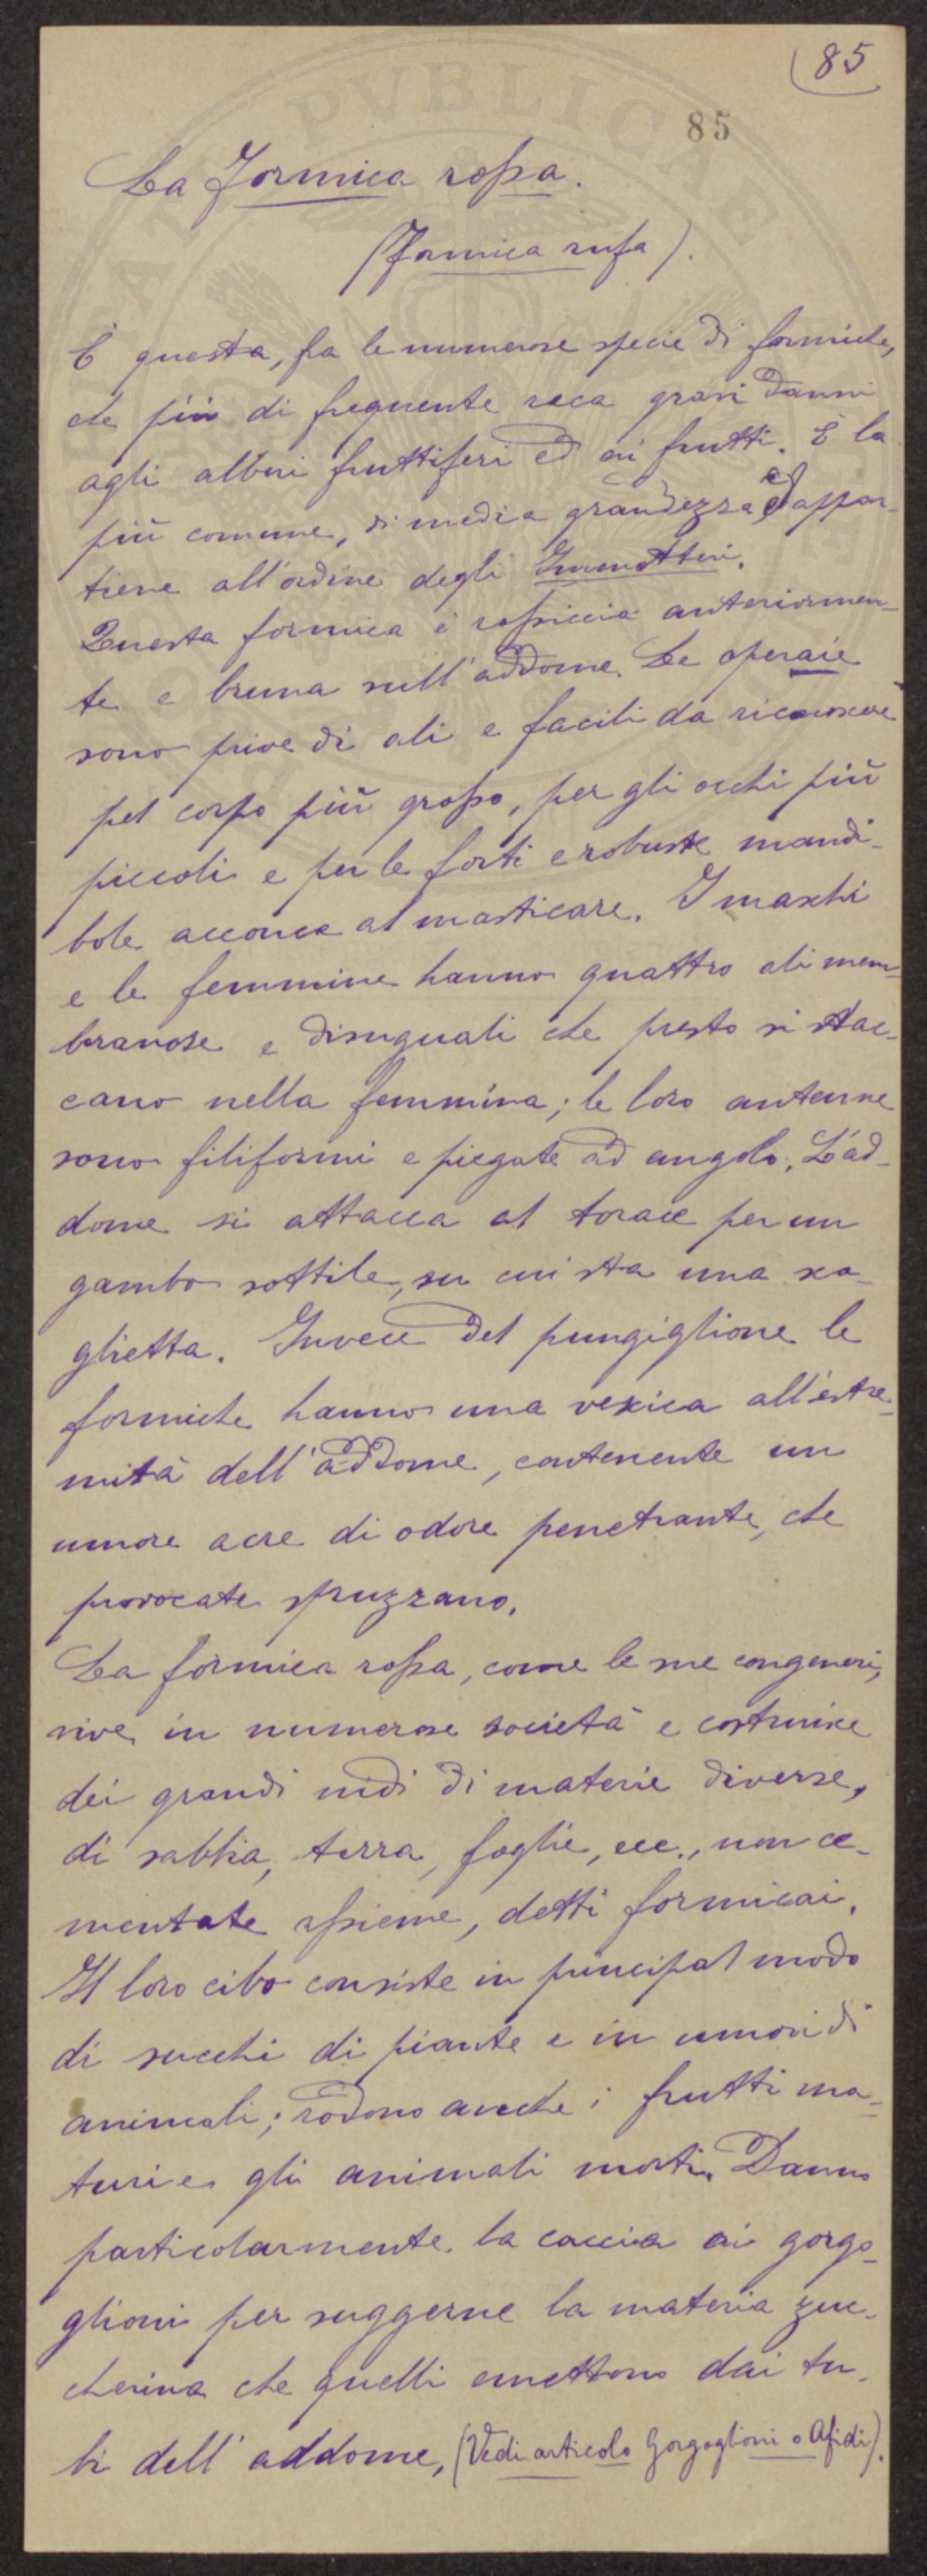 (85
85
La Formica rossa.
(Formica rufa).
È questa, fra le numerose specie di formiche,
che più di frequente reca gravi danni
agli alberi fruttiferi ed ai frutti. È la
più comune, di media grandezza ed appar-
tiene all'ordine degli Imenotteri.
Questa formica è rossiccia anteriormen-
te e bruna sull'addome. Le operaie
sono prive di ali e facili da riconoscere
pel corpo più grosso, per gli occhi più
piccoli e per le forti e robuste mandi-
bole acconce al masticare. I maschi
e le femmine hanno quattro ali mem-
branose e disuguali che presto si stac-
cano nella femmina; le loro antenne
sono filiformi e piegate ad angolo. L'ad-
dome si attacca al torace per un
gambo sottile, su cui sta una sca-
glietta. Invece del pungiglione le
formiche hanno una vescica all'estre-
mità dell'addome, contenente un
umore acre di odore penetrante, che
provocate spruzzano.
La formica rossa, come le sue congeneri,
vive in numerose società e costruisce
dei grandi nidi di materie diverse,
di sabbia, terra, foglie, ecc., non ce-
mentate assieme, detti formicai.
Il loro cibo consiste in principal modo
di succhi di piante e in umori di
animali; rodono anche i frutti ma-
turi e gli animali morti. Danno
particolarmente la caccia ai gorgo-
glioni per suggerne la materia zuc-
cherina che quelli emettono dai tu-
bi dell'addome, (Vedi articolo Gorgoglioni o Afidi).